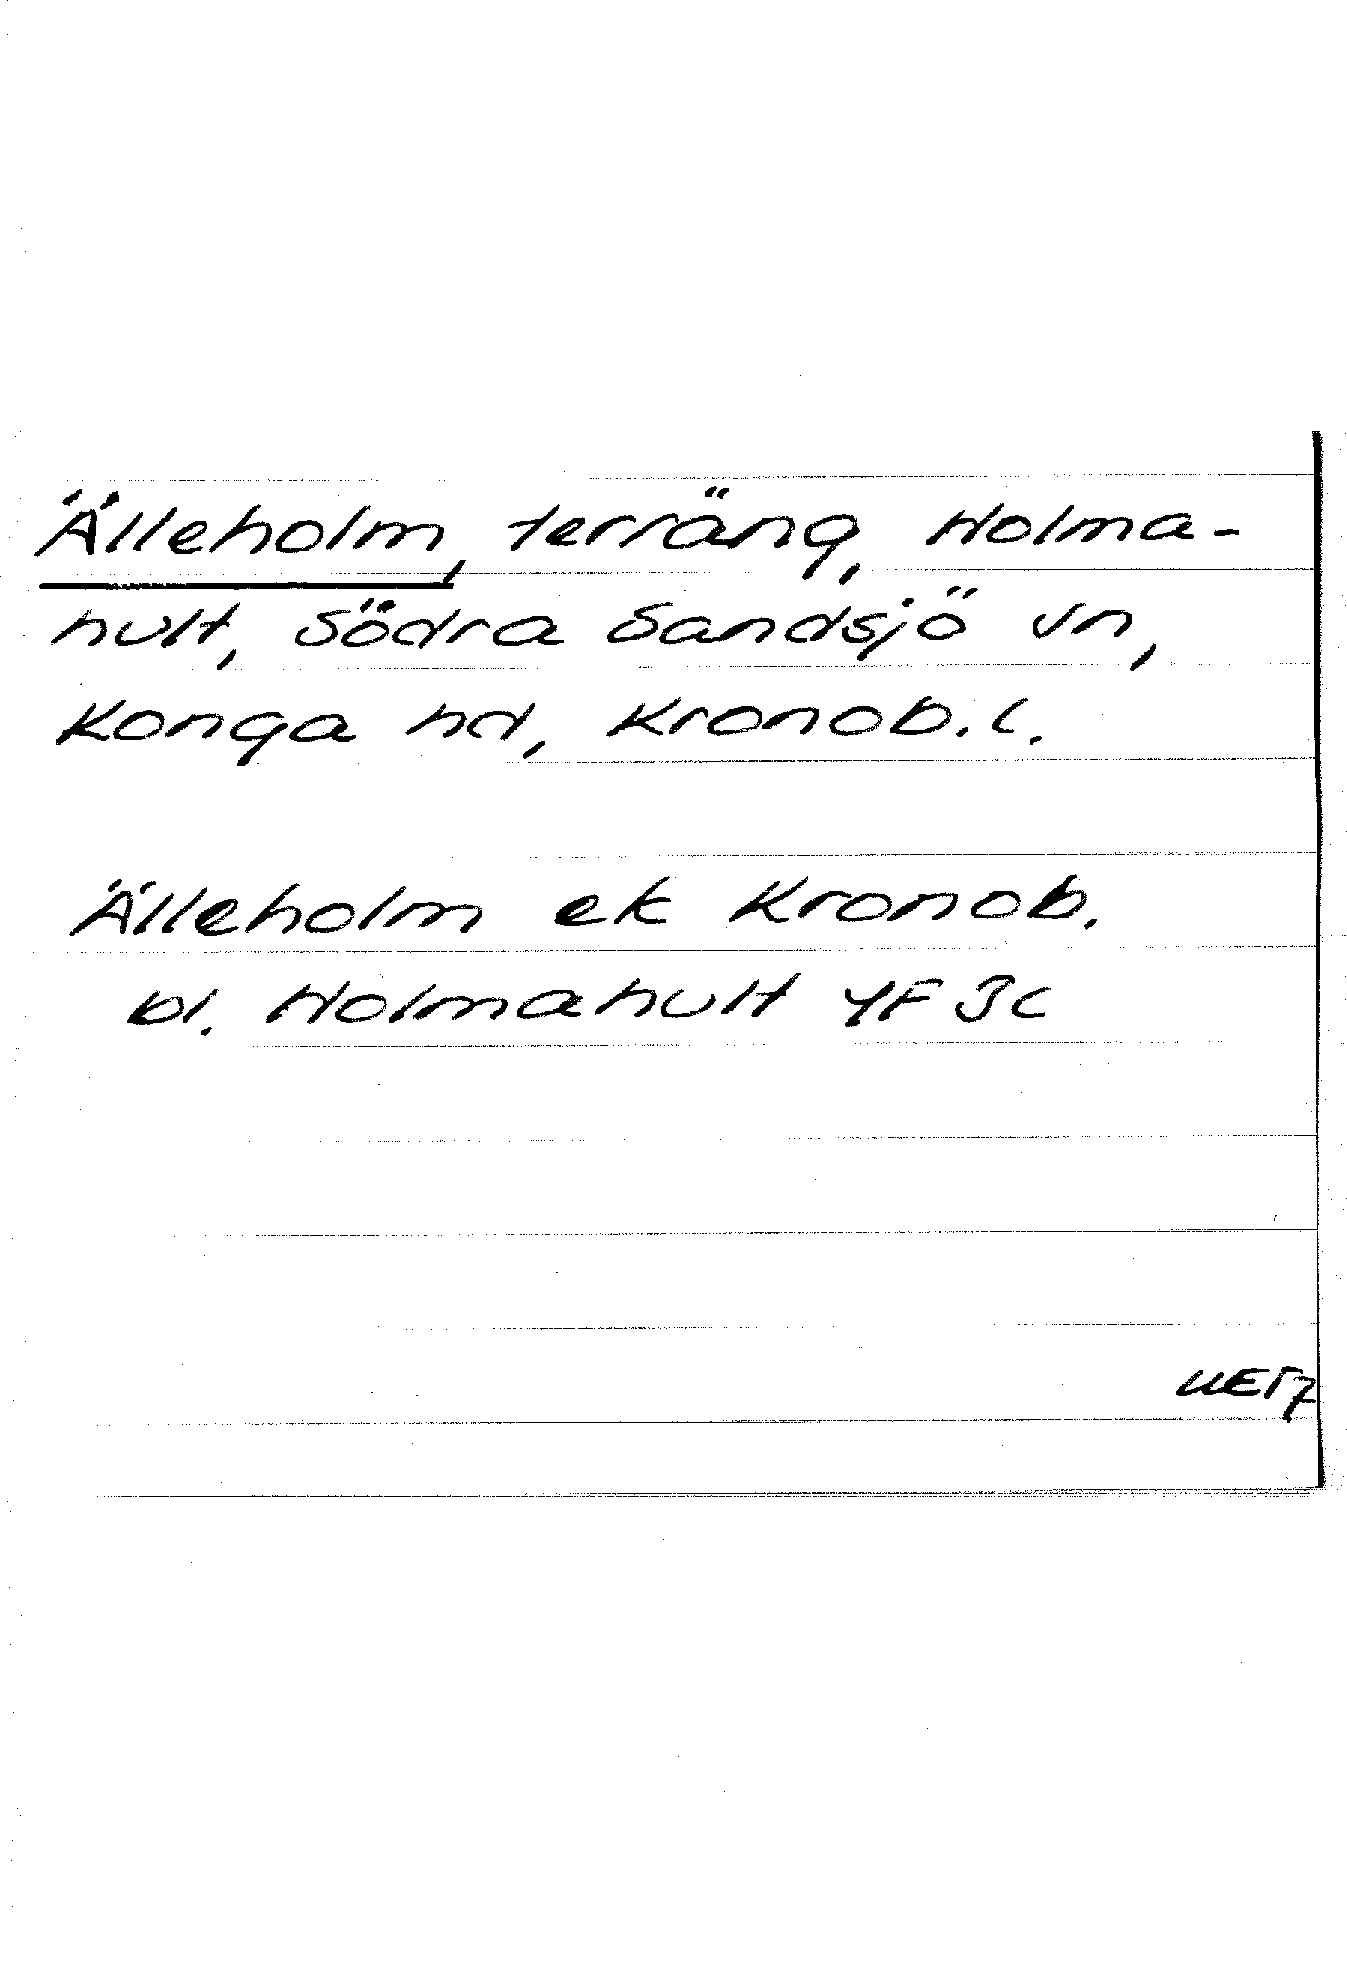 Älleholm, terräng, Holma-
hult, Södra Sandsjö sn,
Konga hd, Kronob. l.
Älleholm ek Kronob.
bl. Holmahult 4F 3c